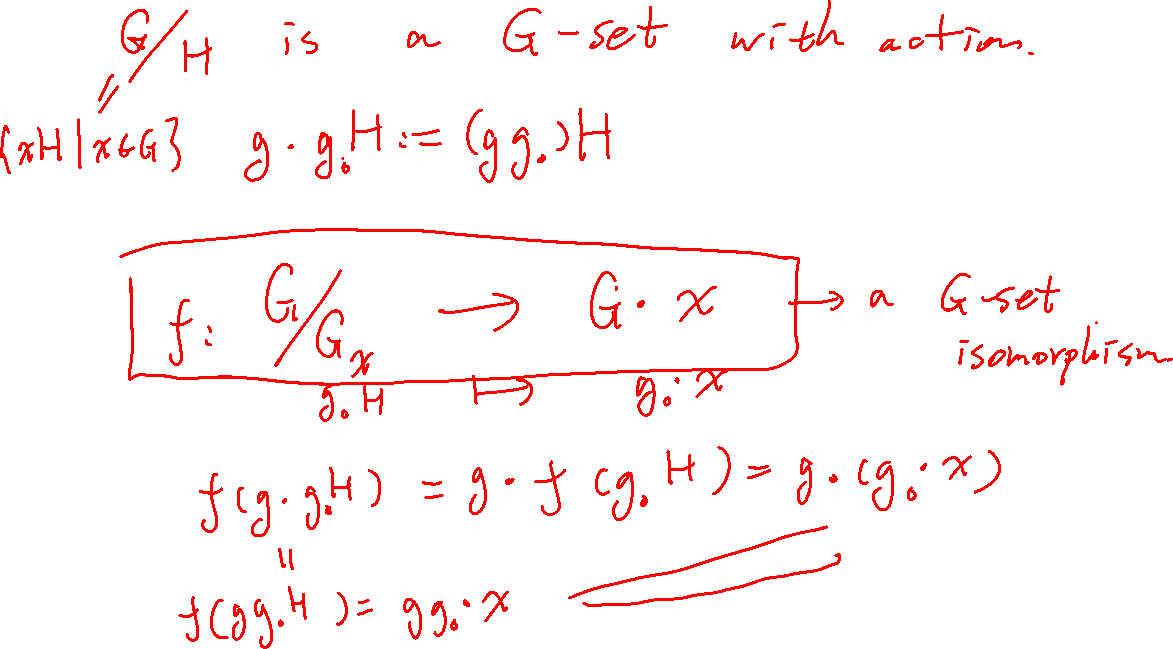 G/H is a G-set with action.
{xH | x∈G} g · g₀H := (gg₀)H
f: G/Gₓ → G · x → a G-set
isomorphism
g₀H ↦ g₀ · x
f(g · g₀H) = g · f(g₀H) = g · (g₀ · x)
||
f(gg₀H) = gg₀ · x